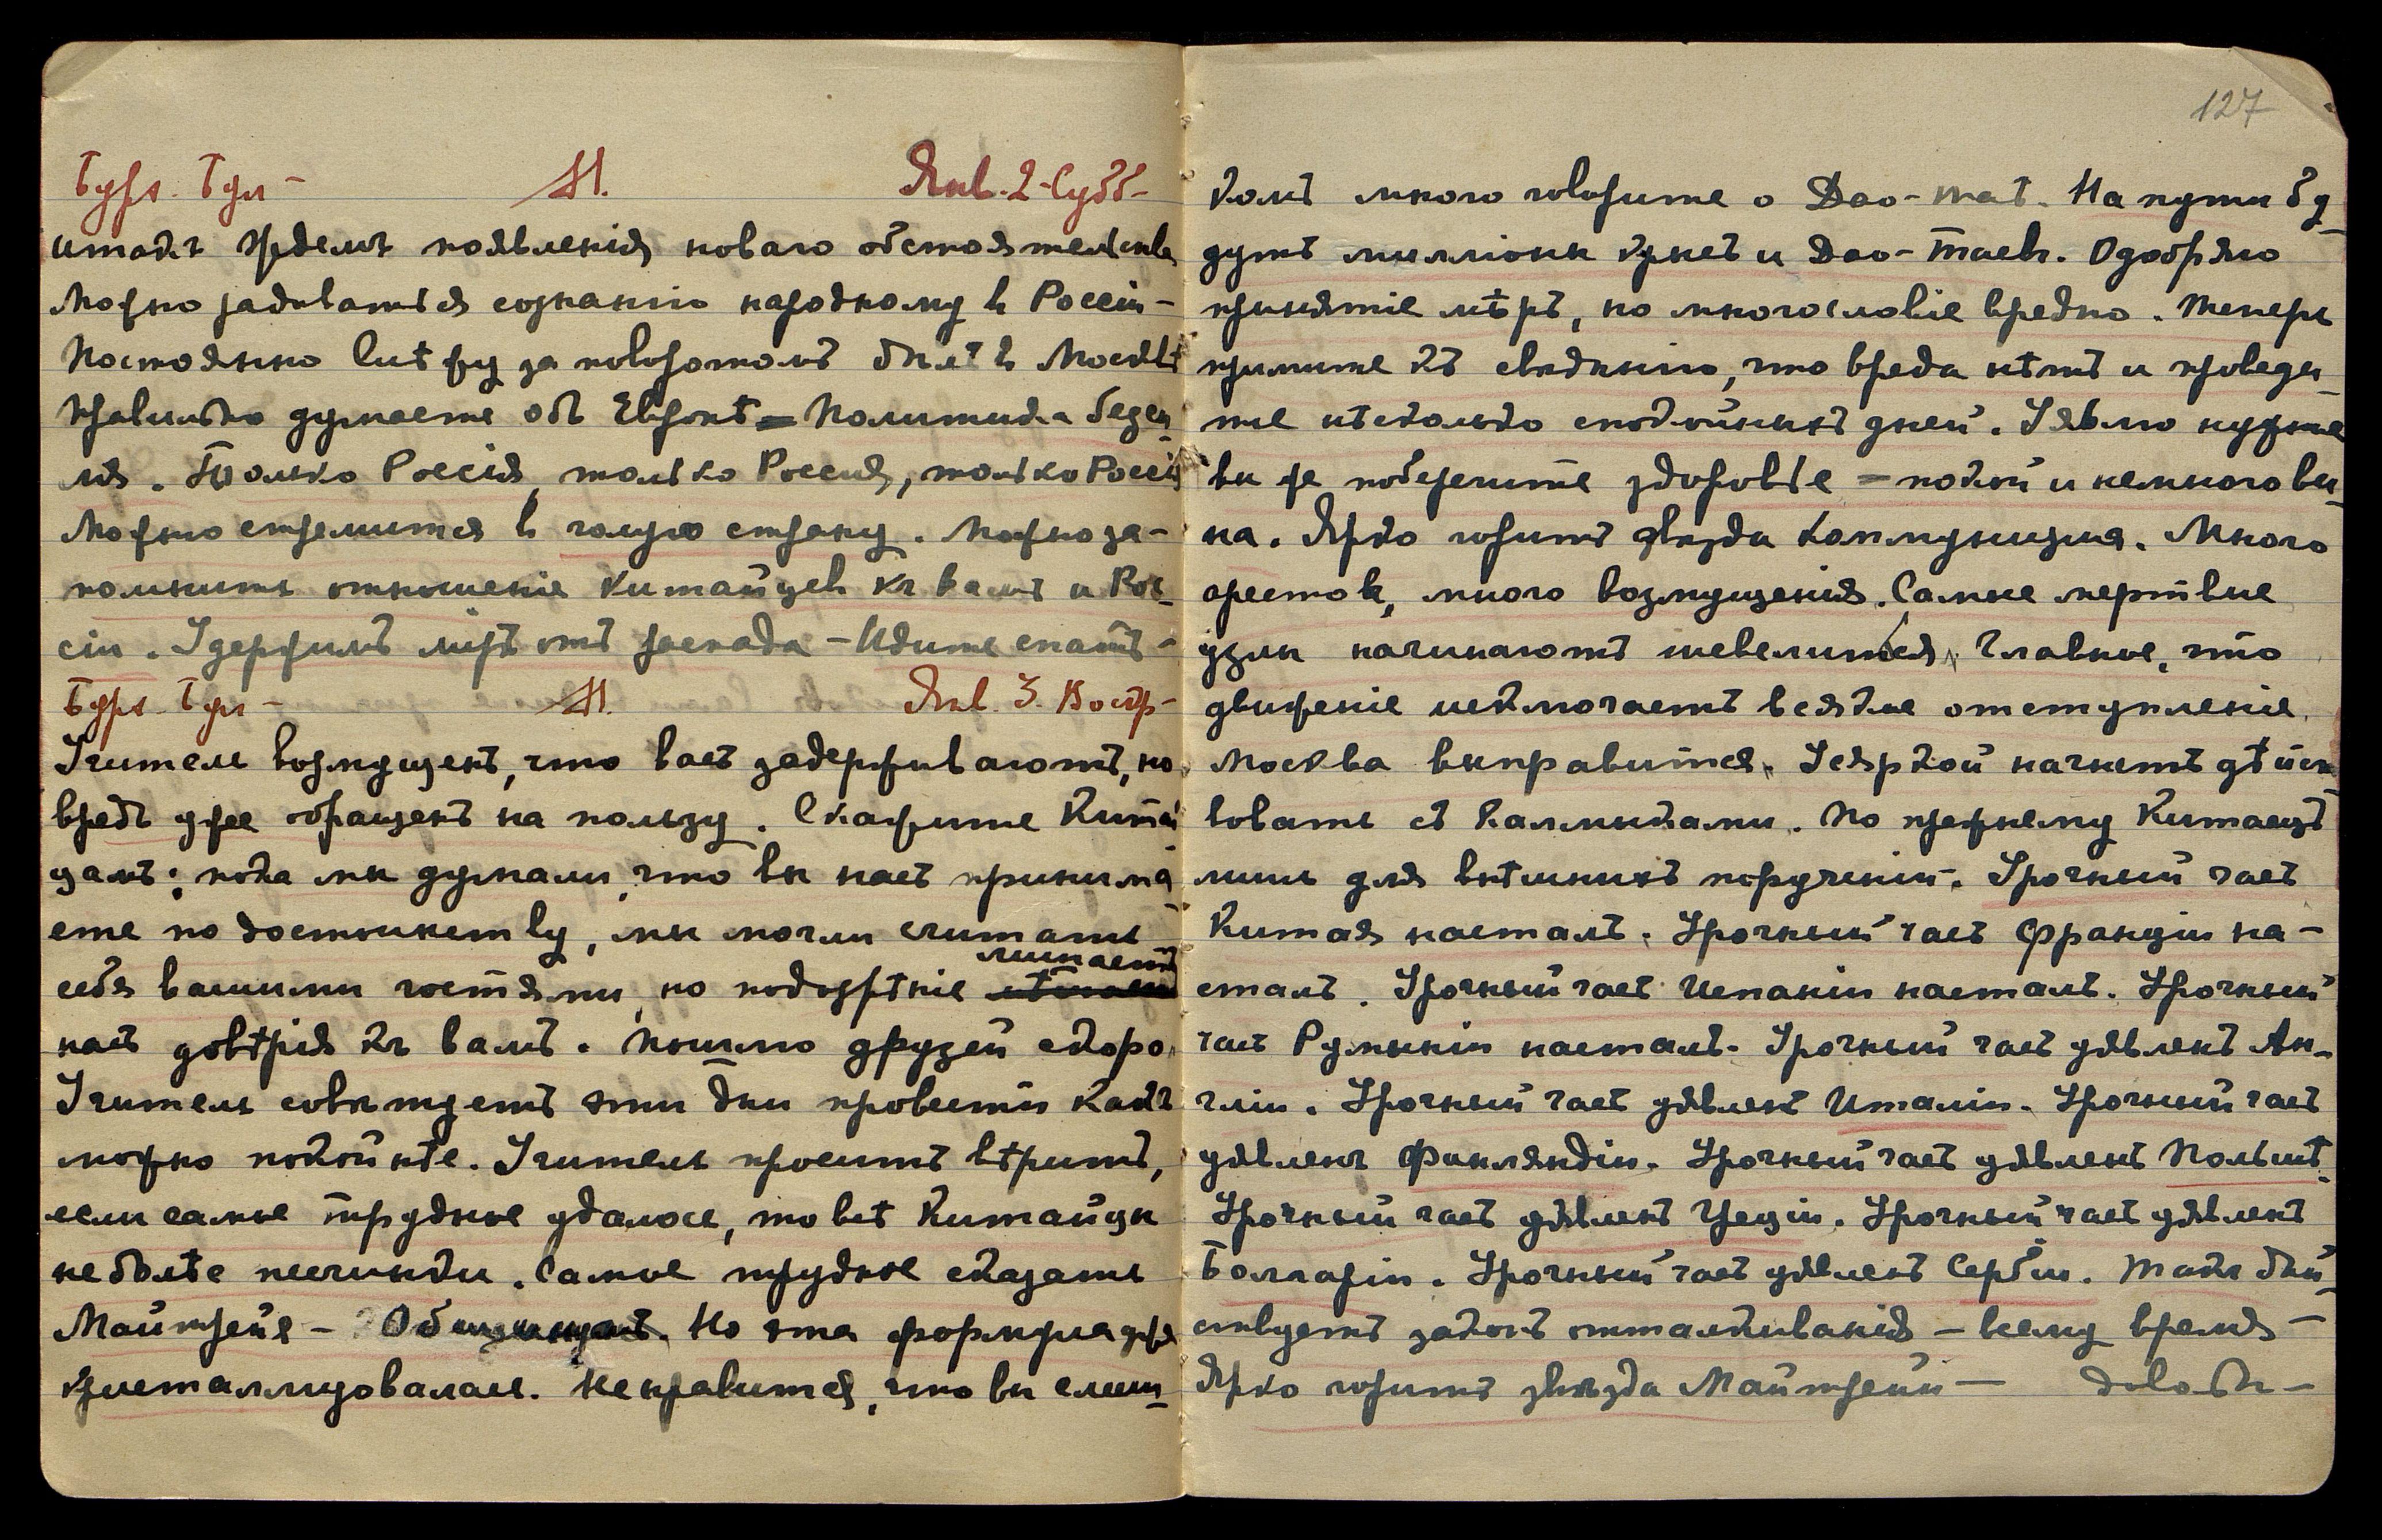 Бурх. Бул – М. Янв. 2 – Субб –
итакъ ждемъ появленія новаго обстоятельства
Можно радоваться сознанію народному в Россіи –
Постоянно слѣжу за поворотомъ дѣлъ в Москвѣ
Правильно думаете объ Европѣ = Политика безцѣ-
лія. Только Россія, только Россия, только Россія
Можно стремится в голую страну. Можно за-
помнить отношеніе Китайцев къ вамъ и Рос-
сіи. Удержимъ міръ отъ распада – Идите спать –
Бурх. Бул – М. Янв. 3. Воскр –
Учитель возмущенъ, что васъ задерживаютъ, но
вредъ уже обращенъ на пользу. Скажите Китай
цамъ: пока мы думали что вы насъ принима-
ете по достоинству, мы могли считать
лишаетъ
себя вашими гостями, но подозрѣніе
насъ довѣрія къ вамъ. Пошлю друзей скоро.
Учитель совѣтуетъ эти дни провести какъ
можно покойнѣе. Учитель проситъ вѣрить,
если самое трудное удалось, то всѣ Китайцы
не болѣе песчинки. Самое трудное сказать
Майтрейя – Общинникъ. Но эта формула уже
кристаллизовалась. Не нравится, что вы слиш-
127
комъ много говорите о Дао-таѣ. На пути бу-
дутъ милліоны кулей и Дао-Таевъ. Одобряю
принятіе мѣръ, но многословіе вредно. Теперь
примите къ свѣдѣнію, что вреда нѣтъ и проведи-
те нѣсколько спокойныхъ дней. Явлю нужное
вы же поберегите здоровье = покой и немного ви-
на. Ярко горитъ звѣзда коммунизма. Много
арестов, много возмущенія. Самые мертвые
узлы начинаютъ шевелиться. Главное, что
движеніе исключаетъ всякое отступленіе.
Москва выправится. Уеяркой начнетъ дѣйст
вовать съ Калмыками. По прежнему Китаецъ
лишь для внѣшнихъ порученій. Урочный часъ
Китая насталъ. Урочный часъ Франціи на-
сталъ. Урочный часъ Испаніи насталъ. Урочный
часъ Румыніи насталъ. Урочный часъ удѣленъ Ан-
гліи. Урочный часъ удѣленъ Италіи. Урочный часъ
удѣленъ Финляндіи. Урочный часъ удѣленъ Польшѣ.
Урочный часъ удѣленъ Греціи. Урочный часъ удѣленъ
Болгаріи. Урочный часъ удѣленъ Сербіи. Такъ дѣй-
ствуетъ законъ отталкиванія – всему время –
Ярко горитъ звѣзда Майтрейи – довольно –